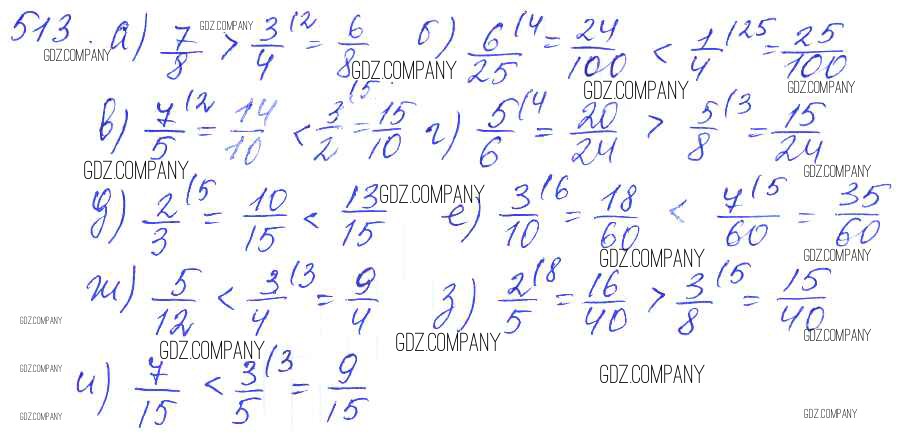 513. а) 7/8 > 3/4 (2 = 6/8 б) 6/25 (4 = 24/100 < 1/4 (25 = 25/100
GDZ.COMPANY GDZ.COMPANY GDZ.COMPANY GDZ.COMPANY GDZ.COMPANY
в) 7/5 (2 = 14/10 < 3/2 (5 = 15/10 г) 5/6 (4 = 20/24 > 5/8 (3 = 15/24
GDZ.COMPANY GDZ.COMPANY
д) 2/3 (5 = 10/15 < 13/15 е) 3/10 (6 = 18/60 < 7/60 (5 = 35/60
GDZ.COMPANY GDZ.COMPANY GDZ.COMPANY
ж) 5/12 < 3/4 (3 = 9/4 з) 2/5 (8 = 16/40 > 3/8 (5 = 15/40
GDZ.COMPANY GDZ.COMPANY GDZ.COMPANY GDZ.COMPANY
и) 7/15 < 3/5 (3 = 9/15
GDZ.COMPANY GDZ.COMPANY
GDZ.COMPANY GDZ.COMPANY